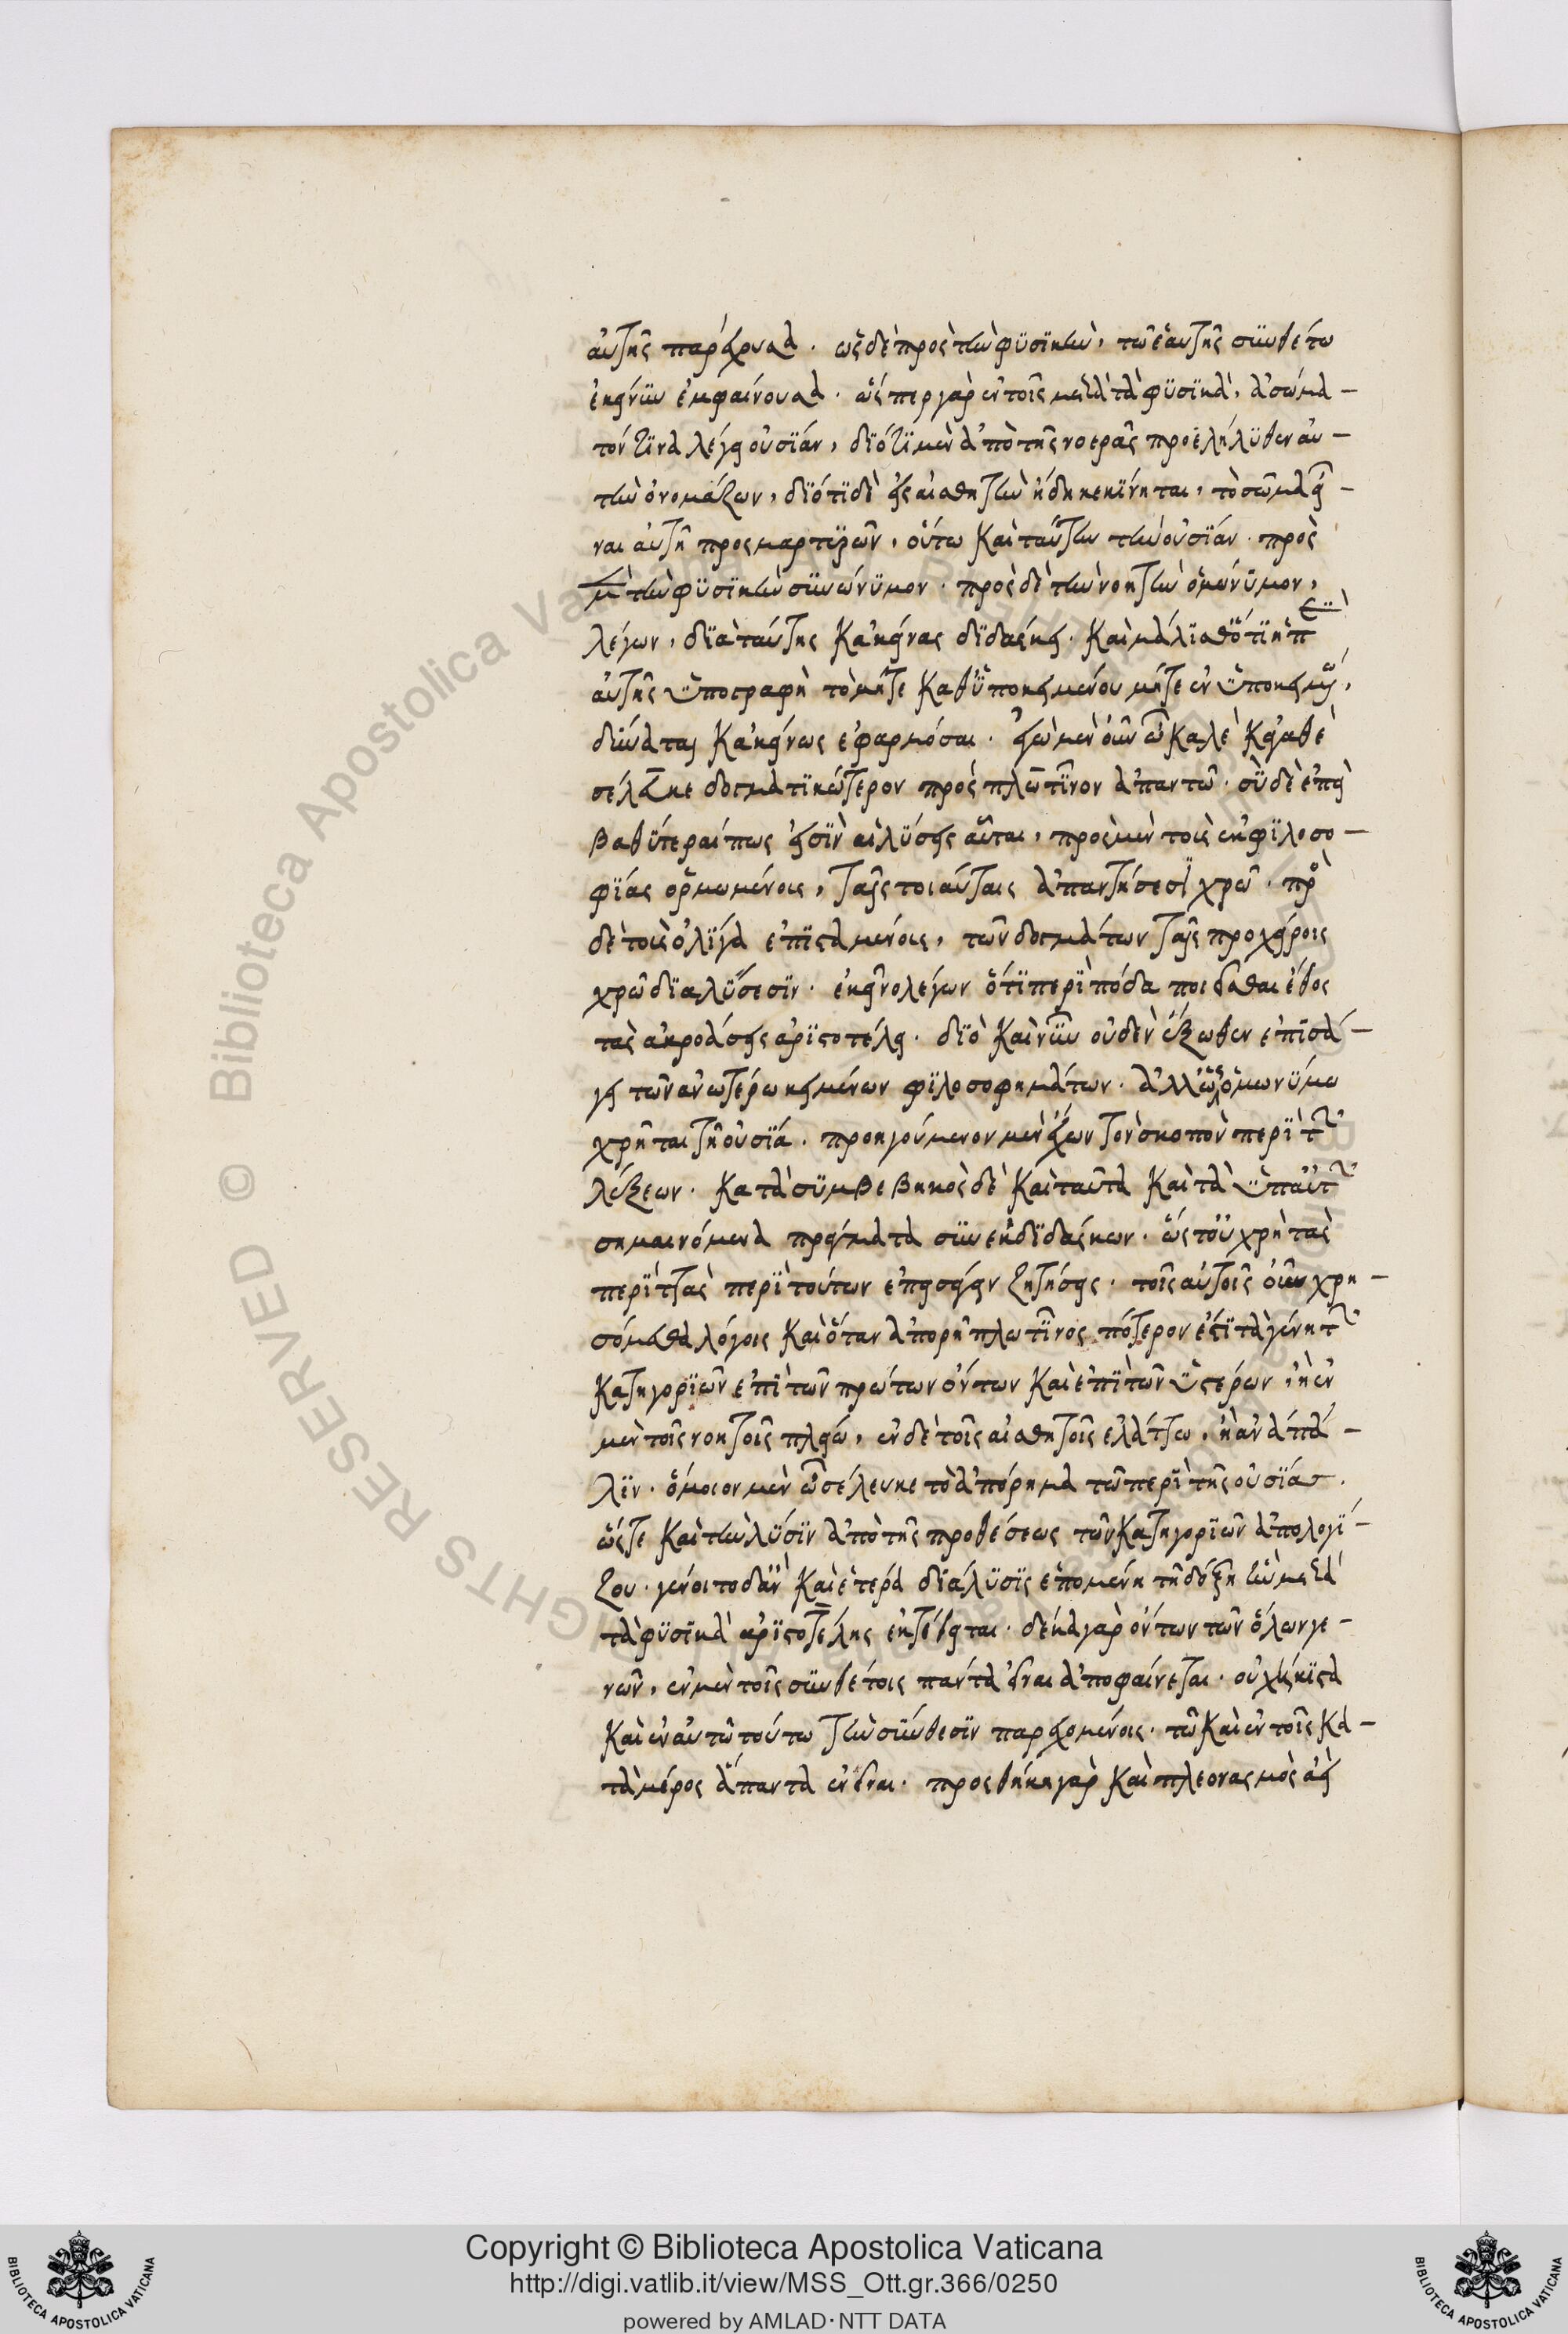 αὐτῆς παρέχουσα. ὡς δὲ πρὸς τὴν φϋσϊκὴν, τῶ ἐξ αὐτῆς σϋνθέτω
ἐκείνϋν ἐμφαίνουσα. ὥς περ γὰρ ἐν τοῖς μετὰ τὰ φϋσϊκὰ, ἀσώμα-
τόν τϊνα λέγει οὐσΐαν, δϊότϊ μὲν ἀπὸ τῆς νοερᾶς προελήλϋθεν αὐ-
τὴν ὀνομάζων, δϊότϊ δὲ εἰς αἰσθητὴν ἤδη κεκΐνηται, τὸ σῶμα εἶ-
ναι αὐτῆ προςμαρτϋρῶν, οὕτω καὶ ταύτην τὴν οὐσΐαν. πρὸς
μὲν τὴν φϋσϊκὴν σϋνώνϋμον. πρὸς δὲ τὴν νοητὴν ὁμώνϋμον,
λέγων, δϊὰ ταύτης κἀκείνας δϊδάσκει. καὶ μάλϊσθ' ὅτϊ ἡ ἐπ'
αὐτῆς ϋπογραφὴ τὸ μήτε καθ' ϋποκειμένου μήτε ἐν ϋποκειμένω,
δϋναται κἀκείνως ἐφαρμόσαι. ἐγὼ μὲν οὖν ὦ καλὲ κἀγαθὲ
σέλευκε δογματϊκώτερον πρὸς πλωτῖνον ἀπαντῶ. σὺ δὲ ἐπεὶ
βαθΰτεραί πως εἰσῒν αἱ λϋσεις αὗται, πρὸς μὲν τοὺς ἐκ φϊλοσο-
φΐας ὁρμωμένους, ταῖς τοιαύταις ἀπαντήσεσϊ χρῶ. πρὸς
δὲ τοὺς ὀλΐγα ἐπϊσταμένους, τῶν δογμάτων ταῖς προχείροις
χρῶ δϊαλϋσεσϊν. ἐκεῖνο λέγων ὅτϊ περῒ πόδα ποιεῖσθαι ἔθος
τὰς ἀκροάσεις ἀρϊστοτέλει. δϊὸ καὶ νῦν οὐδὲν ἔξωθεν ἐπϊσά-
γει τῶν ἀνωτέρω κειμένων φϊλοσοφημάτων. ἀλλ' ὡς ὁμωνϋμω
χρῆται τῆ οὐσΐα. προηγούμενον μὲν ἔχων τὸν σκοπὸν περῒ τῶν
λέξεων. κατὰ σϋμβεβηκὸς δὲ καὶ ταῦτα καὶ τὰ ϋπ' αὐτῶν
σημαινόμενα πράγματα σϋνεκδϊδάσκων. ὥςτ' οὐ χρὴ τὰς
περϊττὰς περῒ τούτων ἐπεισάγειν ζητήσεις. τοῖς αὐτοῖς οὖν χρη-
σόμεθα λόγοις καὶ ὅταν ἀπορῆ πλωτῖνος πότερον ἔστϊ τὰ γένη τῶν
κατηγορϊῶν ἐπῒ τῶν πρώτων ὄντων καὶ ἐπῒ τῶν ϋστέρων, ἢ ἐν
μὲν τοῖς νοητοῖς πλείω, ἐν δὲ τοῖς αἰσθητοῖς ἐλάττω, ἢ ἀνάπα-
λϊν. ὅμοιον μὲν ὦ σέλευκε τὸ ἀπόρημα τῶ περῒ τῆς οὐσΐας.
ὥςτε καὶ τὴν λϋσϊν ἀπὸ τῆς προθέσεως τῶν κατηγορϊῶν ἀπολογΐ-
ζου. γένοιτο δ' ἂν καὶ ἑτέρα δϊάλϋσϊς ἑπομένη τῆ δόξη ἣν μετὰ
τὰ φϋσϊκὰ ἀρϊστοτέλης ἐκτέθειται. δέκα γὰρ ὄντων τῶν ὅλων γε-
νῶν, ἐν μὲν τοῖς σϋνθέτοις πάντα εἶναι ἀποφαίνεται. οὐχ ἥκϊστα
καὶ ἐν αὐτῶ τούτω τὴν σϋνθεσϊν παρεχομένοις. τῶ καὶ ἐν τοῖς κα-
τὰ μέρος ἅπαντα ἐνεῖναι. προςθήκη γὰρ καὶ πλεονασμὸς ἀεὶ
Copyright © Biblioteca Apostolica Vaticana
http://digi.vatlib.it/view/MSS_Ott.gr.366/0250
powered by AMLAD·NTT DATA